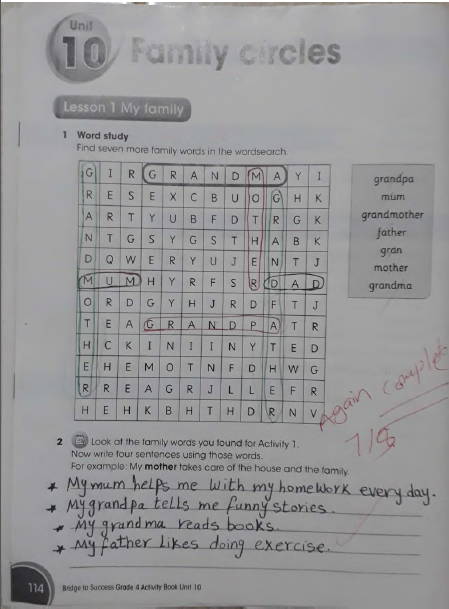 Unit
10 Family circles
Lesson 1 My family
1 Word study
Find seven more family words in the wordsearch.
G I R G R A N D M A Y I
R E S E X C B U O G H K
A R T Y U B F D T R G K
N T G S Y G S T H A B K
D Q W E R Y U J E N T J
M U M H Y R F S R D A D
O R D G Y H J R D F T J
T E A G R A N D P A T R
H C K I N I I N Y T E D
E H E M O T N F D H W G
R R E A G R J L L E F R
H E H K B H T H D R N V
grandpa
mum
grandmother
father
gran
mother
grandma
Again complete
7/8
2 Look at the family words you found for Activity 1.
Now write four sentences using those words.
For example: My mother takes care of the house and the family.
My mum helps me with my homework every day.
My grandpa tells me funny stories.
My grandma reads books.
My father likes doing exercise.
114 Bridge to Success Grade 4 Activity Book Unit 10